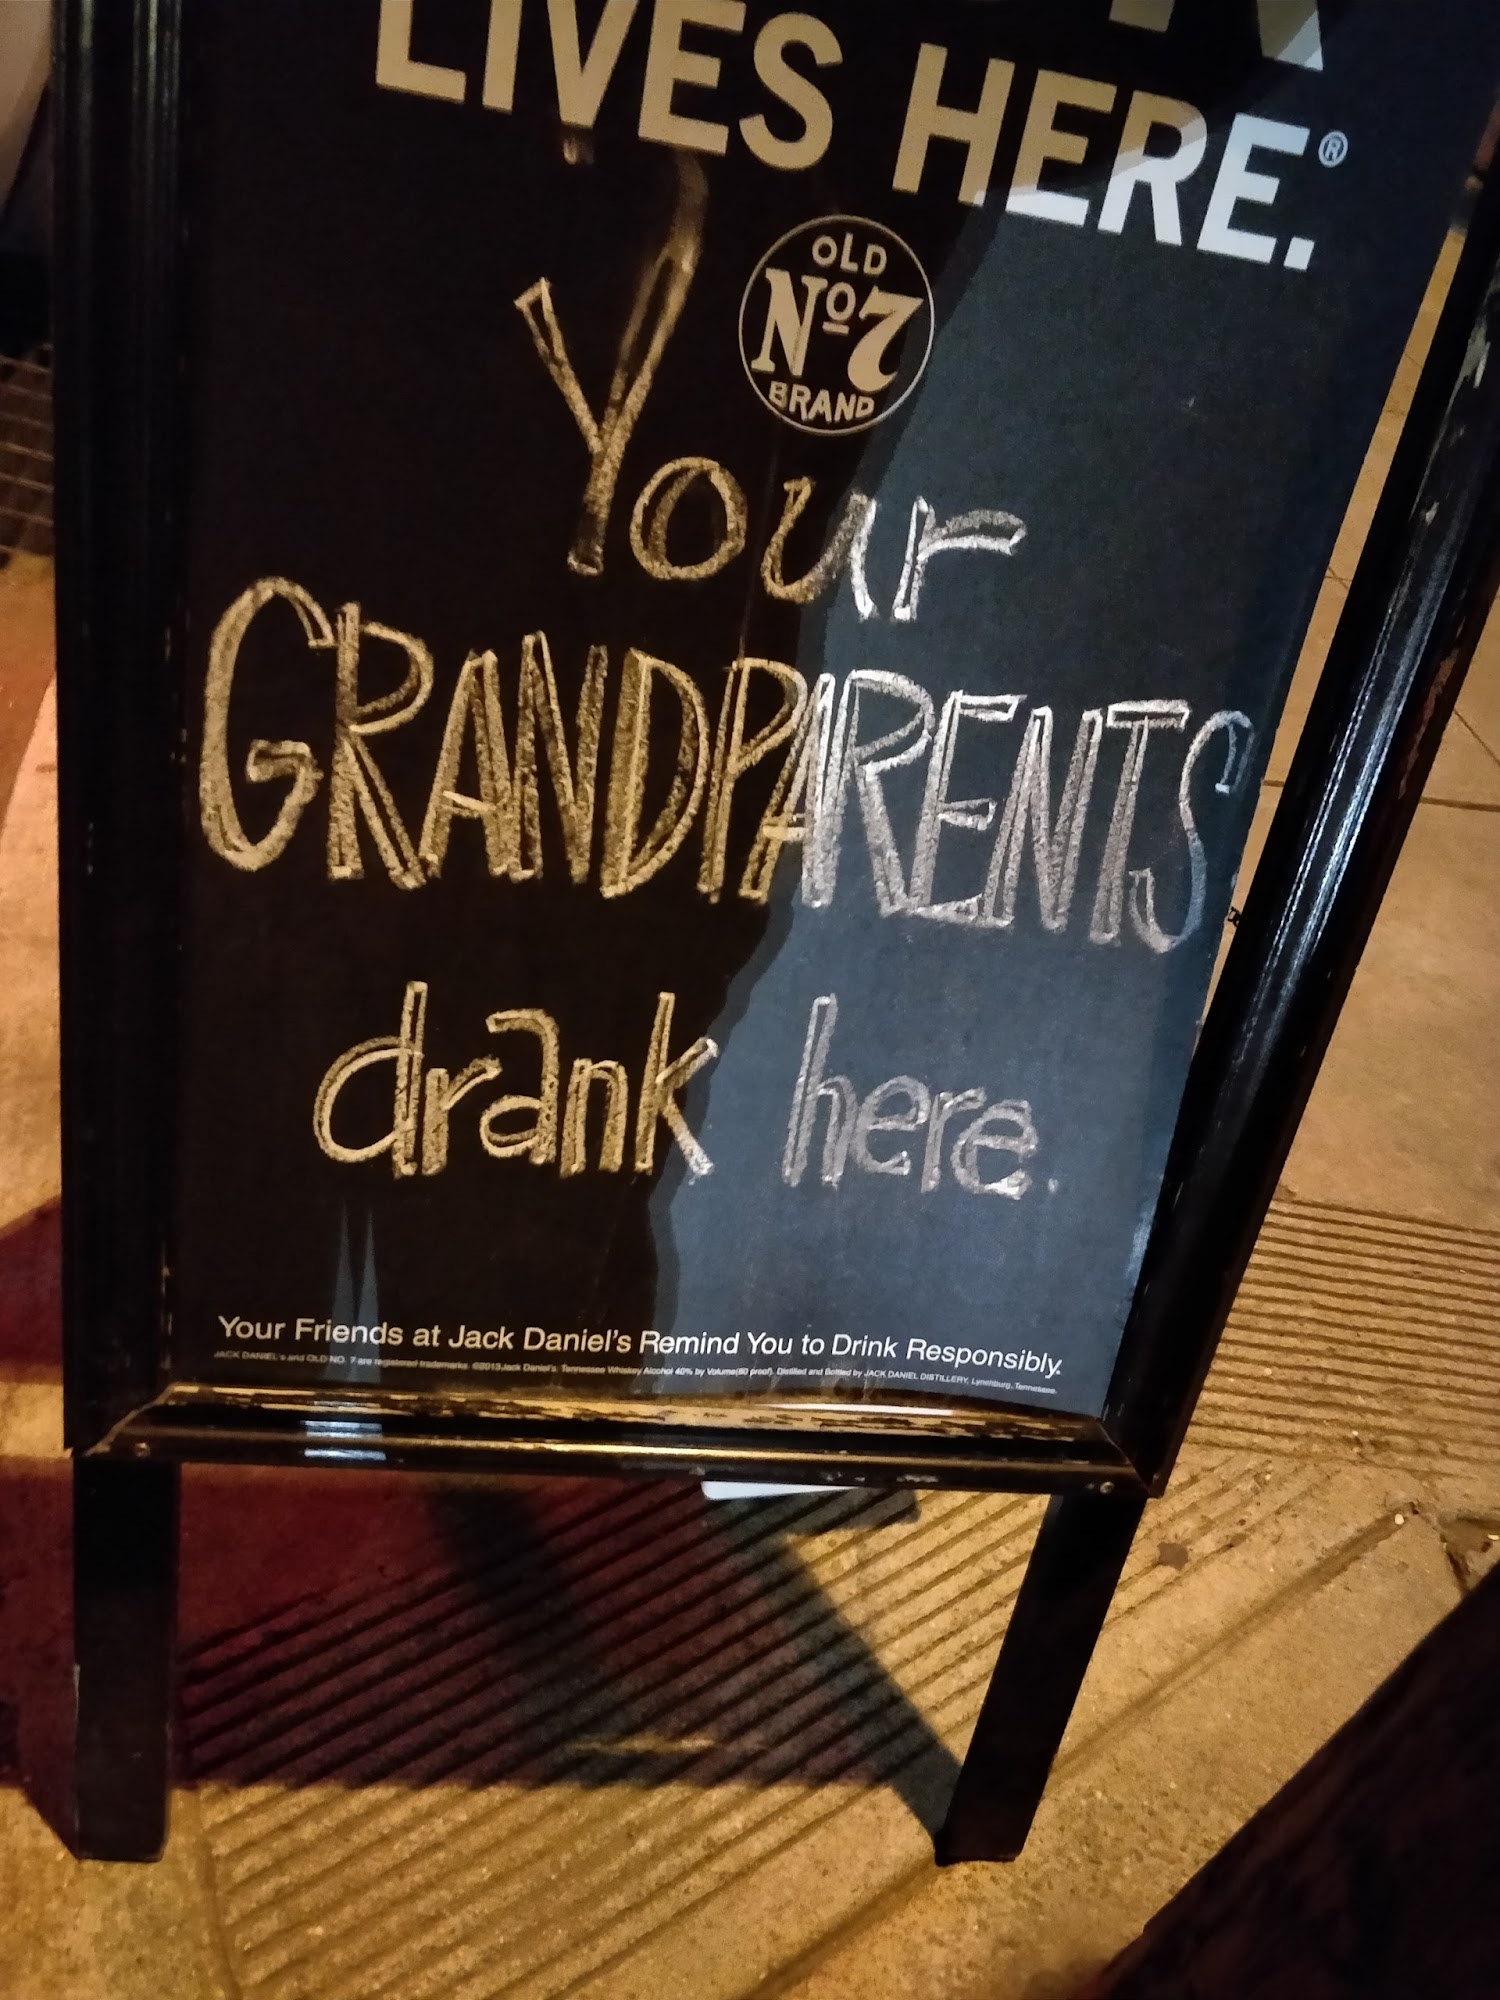 LIVES HERE.®
OLD
Nº7
BRAND
Your
GRANDPARENTS
drank here.
Your Friends at Jack Daniel's Remind You to Drink Responsibly.
JACK DANIEL'S and OLD NO. 7 are registered trademarks. ©2013 Jack Daniel's. Tennessee Whiskey Alcohol 40% by Volume (80 proof). Distilled and Bottled by JACK DANIEL DISTILLERY, Lynchburg, Tennessee.